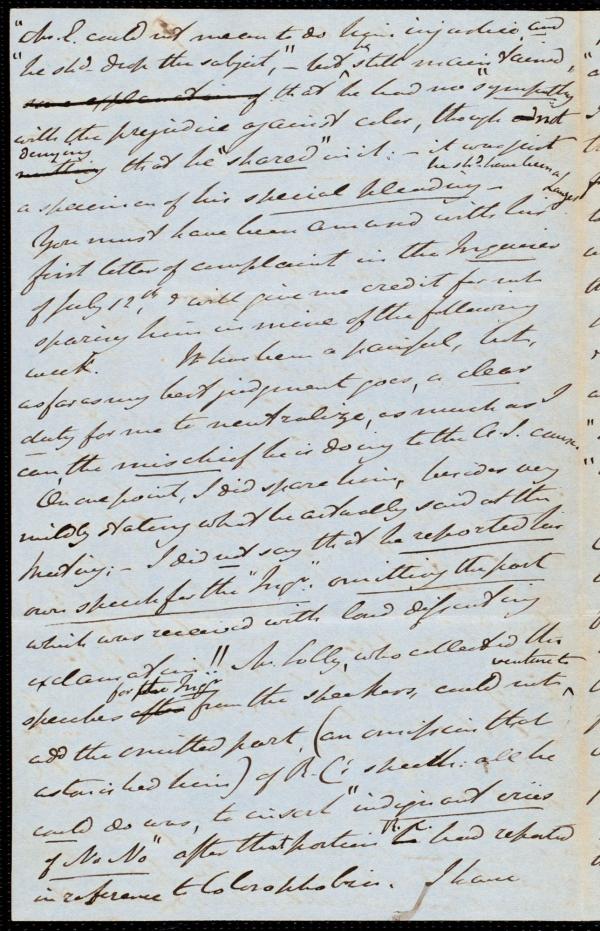 "Mr. E. could not mean to do him injustice, and
"he shd. drop the subject," – but he still maintained,
that he had no "sympathy
with the prejudice against color, though not
denying that he "shared" in it: – it was just
he shd. have been a lawyer
a specimen of his special pleading –
You must have been amused with his
first letter of complaint in the Inquirer
of July 12th, & will give me credit for not
sparing him in mine of the following
week. It has been a painful, but,
as far as my best judgment goes, a clear
duty for me to neutralize, as much as I
can the mischief he is doing to the A.S. cause.
On one point, I did spare him, besides very
mildly stating what he actually said at the
Meeting; – I did not say that he reported his
own speech for the "Inqr." omitting the part
which was received with loud dissenting
exclamations!! Mr. Solly, who collected the
for the Inqr venture to
speeches from the speakers, could not
add the omitted part, (an omission that
astonished him) of R. C's speech: all he
could do was, to insert "indignant cries
of No No" after that portion R. C. had reported
in reference to Colorophobia. I have